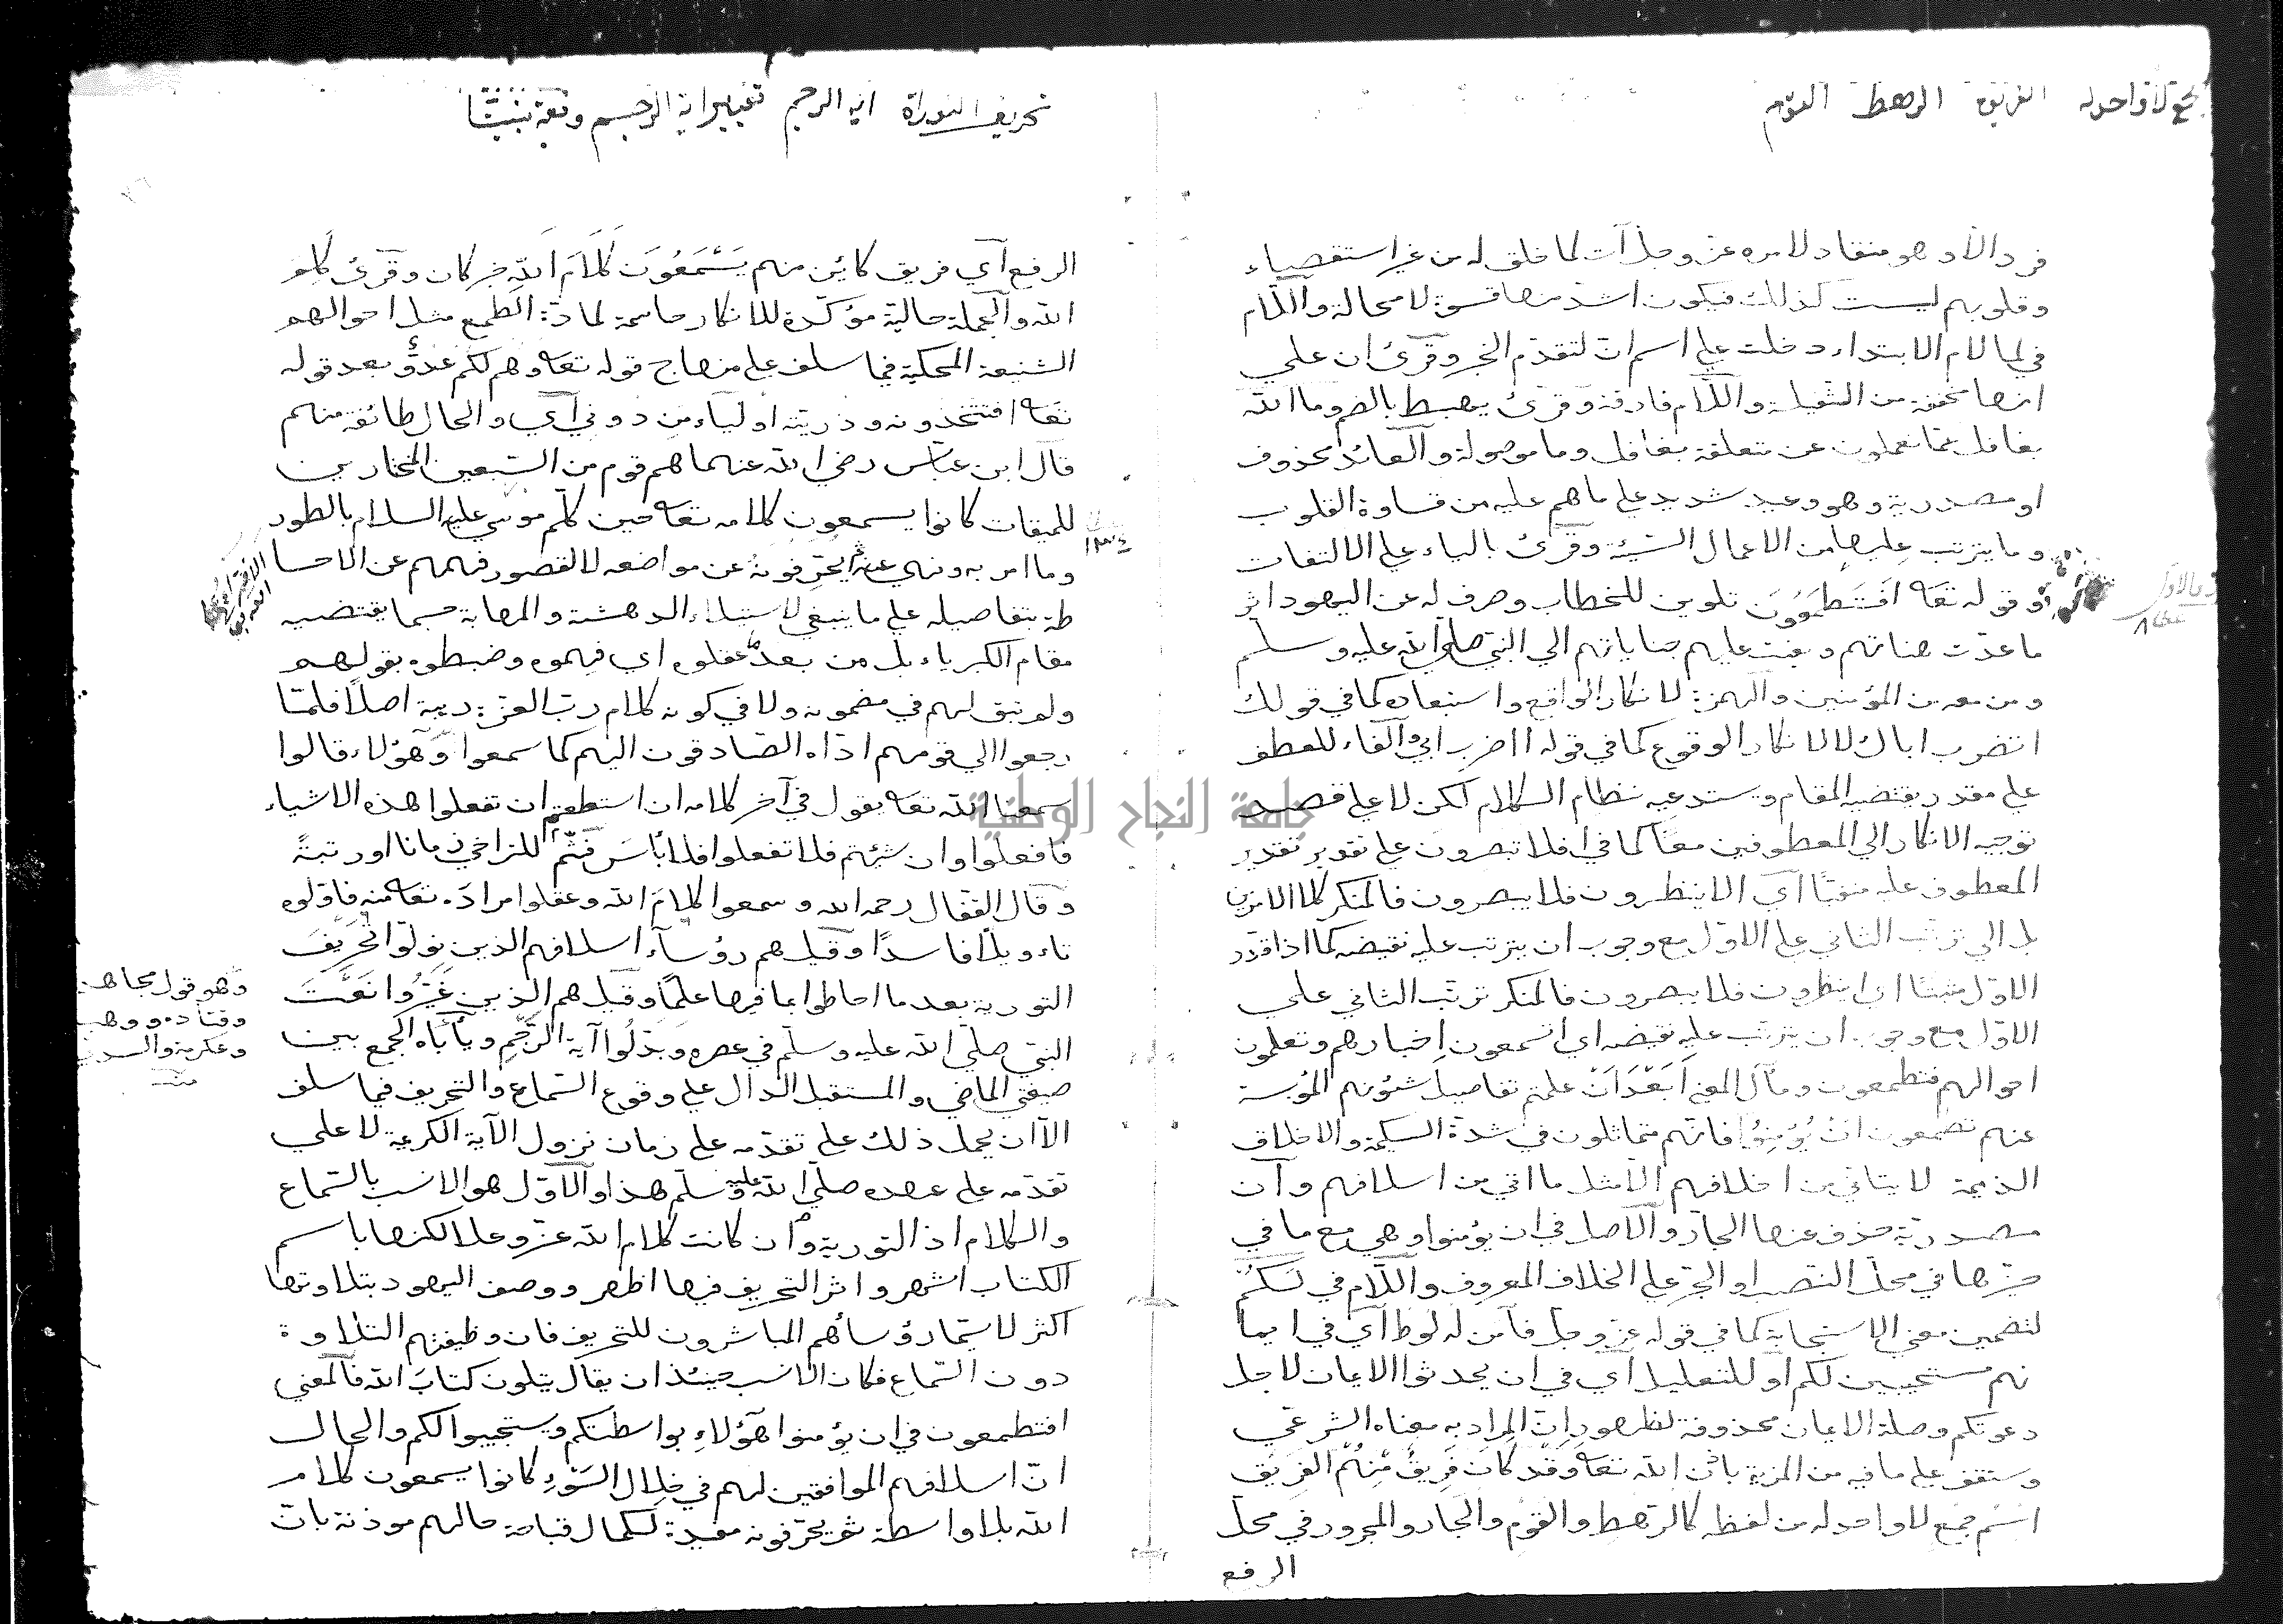 جمع لا واحد له الفريق الرهط القوم
فرد الا وهو منقاد لامره عز وجل آت لما خلق له من غير استقصاء
وقلوبهم ليست كذلك فيكون اشد منها قسوة لا محالة واللام
في لما لام الابتداء دخلت على اسم ان لتقدم الخبر وقرئ ان على
انها مخففة من الثقيلة واللام فارقة وقرئ يهبط بالضم وما الله
بغافل عما تعملون عن متعلقة بغافل وما موصولة والعائد محذوف
او مصدرية وهو وعيد شديد على ما هم عليه من قساوة القلوب
وما يترتب عليها من الاعمال السيئة وقرئ بالياء على الالتفات
وقوله تعا افتطمعون تلوين للخطاب وصرف له عن اليهود اثر
ما عدت هناتهم ونعيت عليهم جناياتهم الى النبي صلى الله عليه وسلم
ومن معه من المؤمنين والهمزة لانكار الواقع واستبعاده كما في قولك
اتضرب اباك لا لانكار الوقوع كما في قوله أاضرب ابي والفاء للعطف
على مقدر يقتضيه المقام ويستدعيه نظام الكلام لكن لا على قصد
توجيه الانكار الى المعطوفين معا كما في افلا تبصرون على تقدير تقدير
المعطوف عليه منفيا اي الا ينظرون فلا يبصرون فالمنكر كلا الامرين
بل الى ترتب الثاني على الاول مع وجوب ان يترتب عليه نقيضه كما اذا قدر
الاول مثبتا اي اينظرون فلا يبصرون فالمنكر ترتب الثاني على
الاول مع وجوب ان يترتب عليه نقيضه اي اتسمعون اخبارهم وتعلمون
احوالهم فتطمعون ومآل المعنى ابعد ان علمتم تفاصيل شئونهم المؤيسة
عنهم تطمعون ان يؤمنوا فانهم متماثلون في شدة الشكيمة والاخلاق
الذميمة لا يتاتى من اخلافهم الا مثل ما اتى من اسلافهم وان
مصدرية حذف عنها الجار والاصل في ان يؤمنوا وهي مع ما في
حيزها في محل النصب او الجر على الخلاف المعروف واللام في لكم
لتضمين معنى الاستجابة كما في قوله عز وجل فآمن له لوط اي في ايما
نهم مستجيبين لكم او للتعليل اي في ان يحدثوا الايمان لاجل
دعوتكم وصلة الايمان محذوفة لظهور ان المراد به معناه الشرعي
وستقف على ما فيه من المزية باذن الله تعا وقد كان فريق منهم الفريق
اسم جمع لا واحد له من لفظه كالرهط والقوم والجار والمجرور في محل
الرفع
تحريف التوراة آية الرجم تغيير آية الرجم
الرفع اي فريق كائن منهم يسمعون كلام الله خبر كان وقرئ كلم
الله والجملة حالية مؤكدة للانكار حاسمة لمادة الطمع مثل احوالهم
الشنيعة المحكية فيما سلف على منهاج قوله تعا وهم لكم عدو بعد قوله
تعا افتتخذونه وذريته اولياء من دوني اي والحال طائفة منهم
قال ابن عباس رضي الله عنهما هم قوم من السبعين المختارين
للميقات كانوا يسمعون كلامه تعا حين كلم موسى عليه السلام بالطور
وما امر به ونهي عنه ثم يحرفونه عن مواضعه لا لقصور فهمهم عن الاحا
طة بتفاصيله على ما ينبغي لاستيلاء الدهشة والمهابة حسبما يقتضيه
مقام الكبرياء بل من بعد ما عقلوه اي فهموه وضبطوه بقولهم
ولم تبق لهم في مضمونه ولا في كونه كلام رب العزة ريبة اصلا فلما
رجعوا الى قومهم اداه الصادقون اليهم كما سمعوا وهؤلاء قالوا
سمعنا الله تعا يقول في آخر كلامه ان استطعتم ان تفعلوا هذه الاشياء
فافعلوا وان شئتم فلا تفعلوا فلا بأس فثم للتراخي زمانا او رتبة
وقال القفال رحمه الله وسمعوا كلام الله وعقلوا مراده تعا منه فاولوه
تاويلا فاسدا وقيل هم رؤساء اسلافهم الذين تولوا تحريف
التورية بعد ما احاطوا بما فيها علما وقيل هم الذين غيروا نعت
النبي صلى الله عليه وسلم في عصره وبدلوا آية الرجم ويأباه الجمع بين
صيغتي الماضي والمستقبل الدال على وقوع السماع والتحريف فيما سلف
الا ان يحمل ذلك على تقدمه على زمان نزول الآية الكريمة لا على
تقدمه على عهده صلى الله عليه وسلم هذا والاول هو الانسب بالسماع
والكلام اذ التورية وان كانت كلام الله عز وعلا لكنها باسم
الكتاب اشهر واثر التحريف فيها اظهر ووصف اليهود بتلاوتها
اكثر لا سيما رؤساؤهم المباشرون للتحريف فان وظيفتهم التلاوة
دون السماع فكان الانسب حينئذ ان يقال يتلون كتاب الله فالمعنى
افتطمعون في ان يؤمنوا هؤلاء بواسطتكم ويستجيبوا لكم والحال
ان اسلافهم الموافقين لهم في خلال السوء كانوا يسمعون كلام
الله بلا واسطة ثم يحرفونه مفيدة لكمال قباحة حالهم موذنة بان
وهو قول مجاهد
وقتاده ووهب
وعكرمة والسدي
منه
جامعة النجاح الوطنية